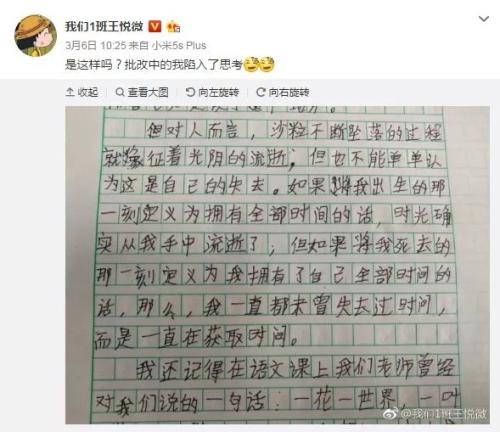 我们1班王悦微
3月6日 10:25 来自 小米5s Plus
是这样吗?批改中的我陷入了思考
收起 查看大图 向左旋转 向右旋转
但对人而言，沙粒不断坠落的过程
就像征着光阴的流逝；但也不能单单认
为这是自己的失去。如果将我出生的那
一刻定义为拥有全部时间的话，时光确
实从我手中流逝了；但如果将我死去的
那一刻定义为我拥有了自己全部时间的
话，那么，我一直都未曾失去过时间，
而是一直在获取时间。
我还记得在语文课上我们老师曾经
对我们说的一句话：一花一世界，一叶
@我们1班王悦微